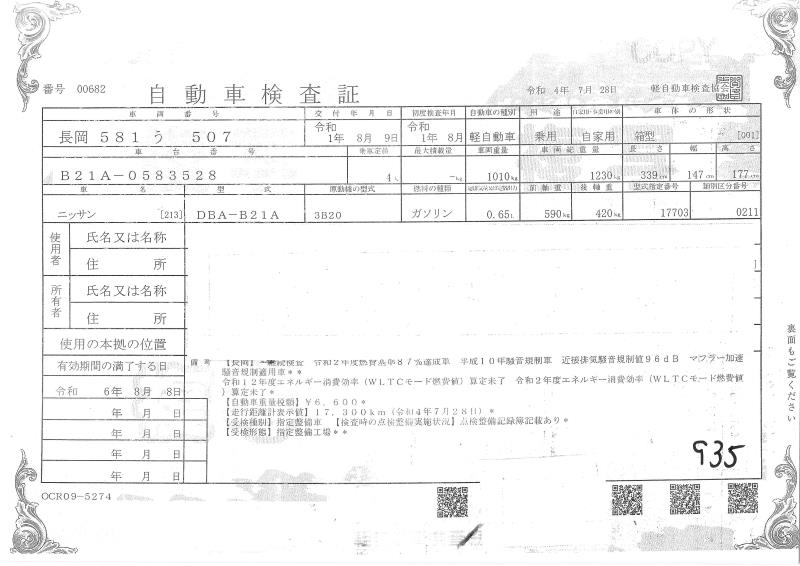 COPY
番号 00682
自動車検査証
令和 4年 7月 28日 軽自動車検査協会
車両番号 交付年月日 初度検査年月 自動車の種別 用途 自家用・事業用の別 車体の形状
長岡 581 う 507 令和 1年 8月 9日 令和 1年 8月 軽自動車 乗用 自家用 箱型 [001]
車台番号 乗車定員 最大積載量 車両重量 車両総重量 長さ 幅 高さ
B21A-0583528 4人 -kg 1010kg 1230kg 339cm 147cm 177cm
車名 型式 原動機の型式 燃料の種類 前軸重 後軸重 型式指定番号 類別区分番号
ニッサン [213] DBA-B21A 3B20 ガソリン 0.65L 590kg 420kg 17703 0211
使用者
氏名又は名称
住所
所有者
氏名又は名称
住所
使用の本拠の位置
有効期間の満了する日
令和 6年 8月 8日
年 月 日
年 月 日
年 月 日
年 月 日
備考
【長岡】 継続検査 令和2年度燃費基準87%達成車 平成10年騒音規制車 近接排気騒音規制値96dB マフラー加速
騒音規制適用車**
令和12年度エネルギー消費効率(WLTCモード燃費値)算定未了 令和2年度エネルギー消費効率(WLTCモード燃費値
)算定未了*
【自動車重量税額】¥6,600*
【走行距離計表示値】17,300km(令和4年7月28日)*
【受検種別】指定整備車 【検査時の点検整備実施状況】点検整備記録簿記載あり*
【受検形態】指定整備工場**
935
裏面もご覧ください
OCR09-5274